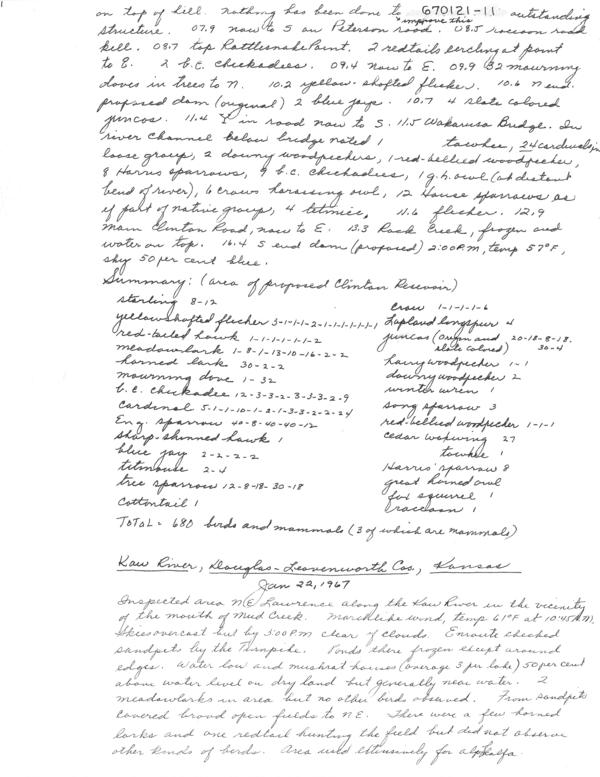 on top of hill. nothing has been done to 670121-11 outstanding
"improve this"
structure. 07.9 now to S on Peterson road. 08.5 racoon road
kill. 08.7 top Rattlesnake Point. 2 redtails perching at point
to E. 2 b.c. chickadees. 09.4 now to E. 09.9 32 mourning
doves in trees to N. 10.2 yellow-shafted flicker. 10.6 N end
proposed dam (original) 2 blue jays. 10.7 4 slate colored
juncos. 11.4 Y in road now to S. 11.5 Wakarusa Bridge. In
river channel below bridge noted 1 towhee, 24 cardinals in
loose group, 2 downy woodpeckers, 1 red-bellied woodpecker,
8 Harris sparrows, 9 b.c. chickadees, 1 g.h. owl (at distant
bend of river), 6 crows harassing owl, 12 House sparrows as
if part of native group, 4 titmice, 11.6 flicker. 12.9
main Clinton Road, now to E. 13.3 Rock Creek, frozen and
water on top. 16.4 S end dam (proposed) 2:00 P.M, temp 57°F,
sky 50 per cent blue.
Summary: (area of proposed Clinton Resevoir)
starling 8-12
yellowshafted flicker 3-1-1-1-2-1-1-1-1-1-1
red-tailed hawk 1-1-1-1-1-1-2
meadowlark 1-8-1-13-10-16-2-2
horned lark 30-2-2
mourning dove 1-32
b.c. chickadee 12-3-3-2-3-3-3-2-9
cardinal 5-1-1-10-1-2-1-3-3-2-2-24
Eng. sparrow 40-8-40-40-12
sharp-shinned hawk 1
blue jay 2-2-2-2
titmouse 2-4
tree sparrow 12-8-18-30-18
cottontail 1
crow 1-1-1-1-6
Lapland longspur 4
juncos (Oregon and 20-18-8-18-
slate colored) 30-4
hairy woodpecker 1-1
downy woodpecker 2
winter wren 1
song sparrow 3
red-bellied woodpecker 1-1-1
cedar waxwing 27
towhee 1
Harris' sparrow 8
great horned owl
fox squirrel 1
raccoon 1
TOTAL = 680 birds and mammals (3 of which are mammals)
Kaw River, Douglas-Leavenworth Cos., Kansas
Jan 22, 1967
Inspected area NE Lawrence along the Kaw River in the vicinity
of the mouth of Mud Creek. Marchlike wind, temp 61°F at 10:45 A.M.
Skies overcast but by 3:00 P.M clear of clouds. Enroute checked
sandpits by the Turnpike. Ponds there frozen except around
edges. Water low and muskrat houses (average 3 per lake) 50 per cent
above water level on dry land but generally near water. 2
meadowlarks in area but no other birds observed. From sandpits
covered broad open fields to N.E. There were a few horned
larks and one redtail hunting the field but did not observe
other kinds of birds. Area used extensively for alfalfa.